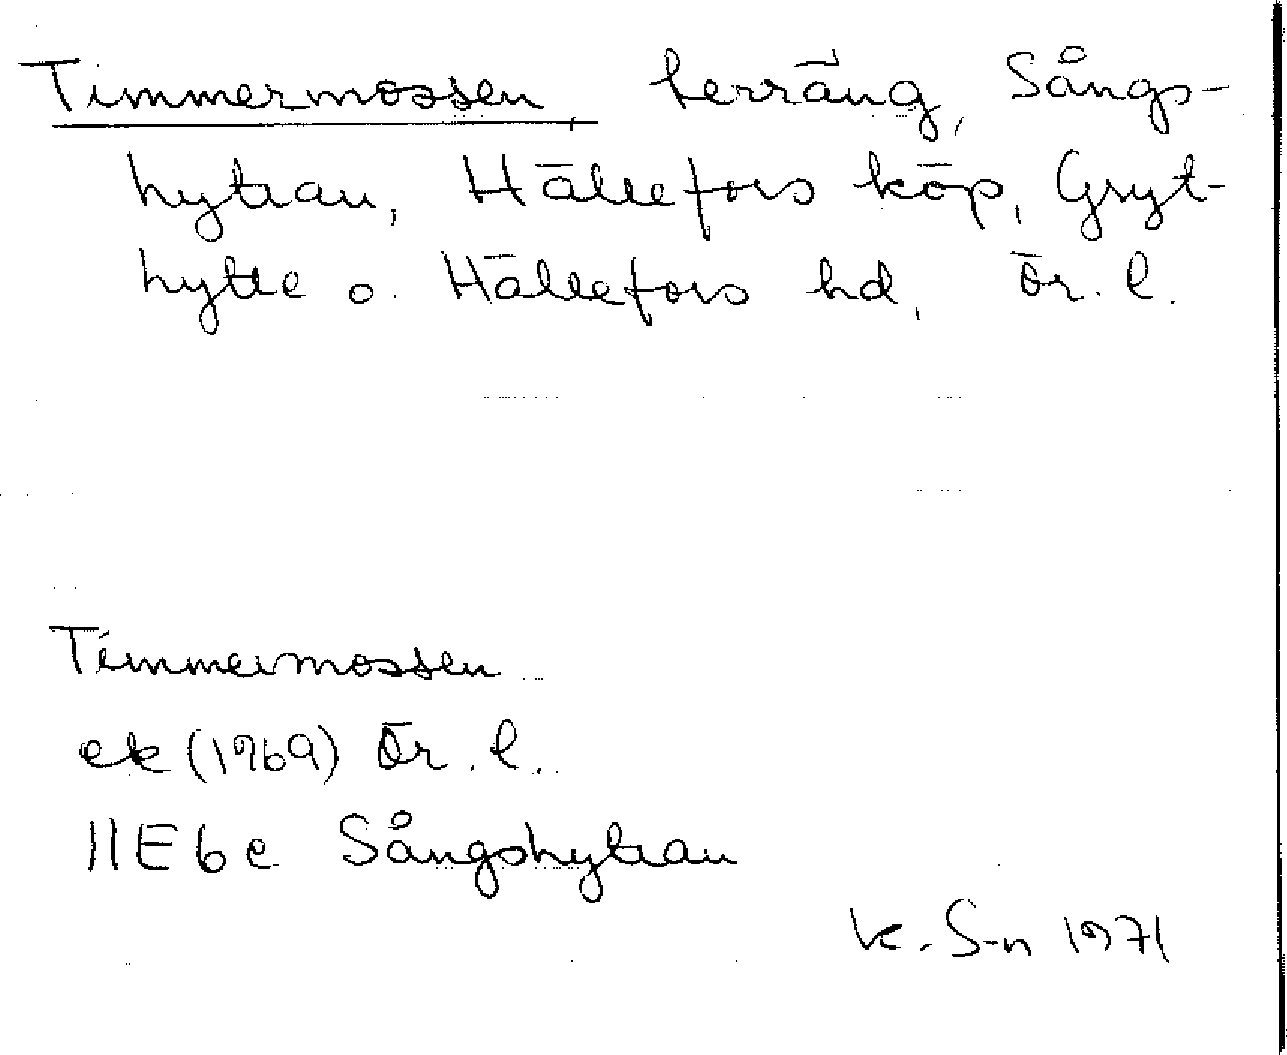 Timmermossen, terräng, Sångs-
hyttan, Hällefors köp, Gryt-
hytte o. Hällefors hd, Ör. l.
Timmermossen
ek (1969) Ör. l.
11E 6e Sångshyttan
K. S-n 1971